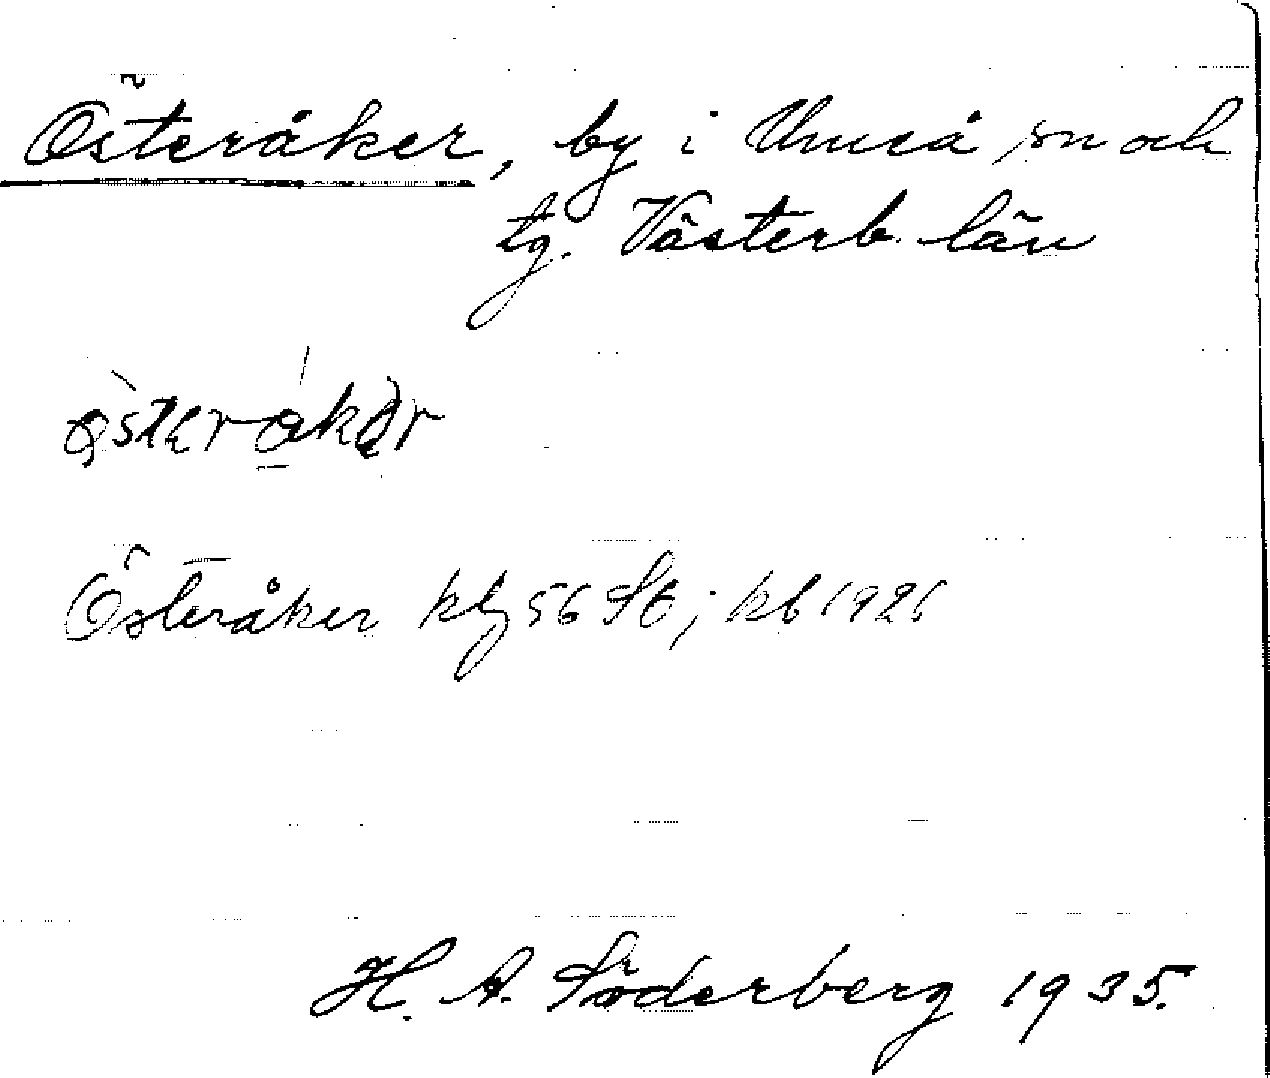 Österåker, by i Umeå sn och
tg. Västerb. län
Österåker kbg 56 St; kb 1921
H. A. Söderberg 1935.